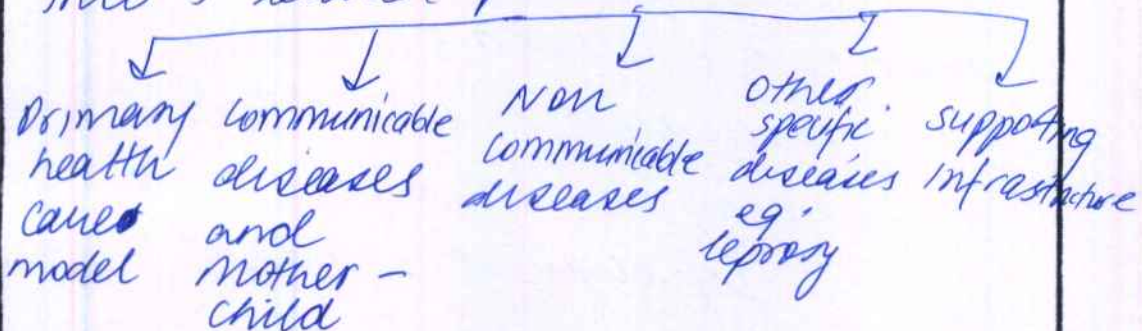 Primary health care model
communicable diseases and mother - child
Non communicable diseases
other specific diseases eg. leprosy
supporting infrastructure